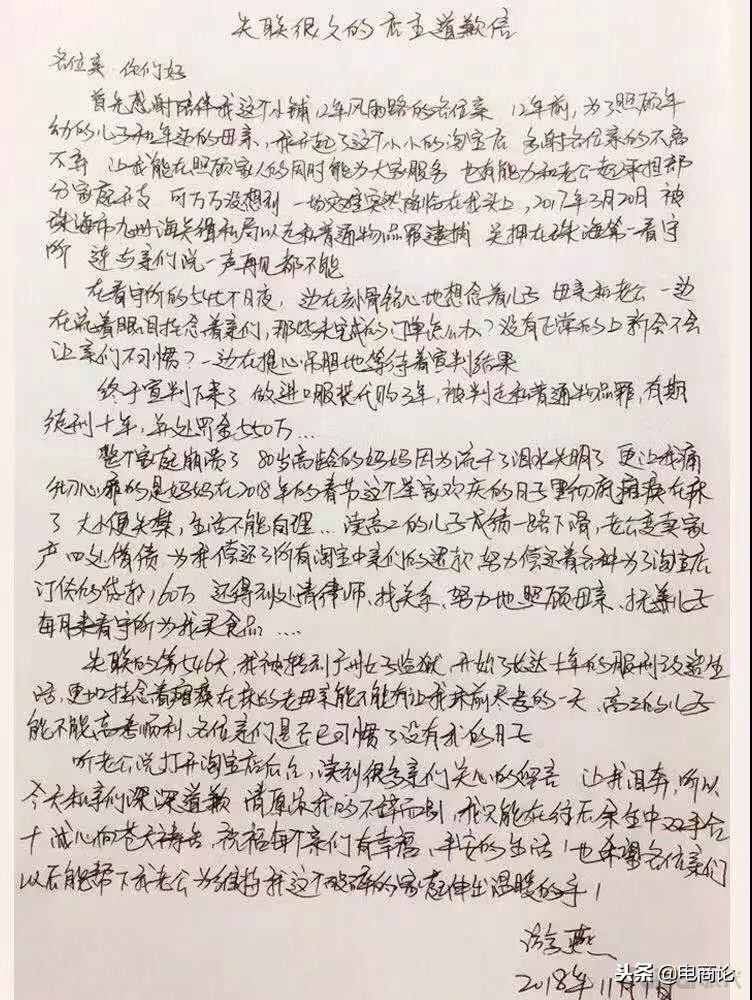 失联很久的店主道歉信
各位亲 你们好
首先感谢陪伴我这个小铺12年风雨路的各位亲 12年前,为了照顾年
幼的儿子和年迈的母亲,我开起了这个小小的淘宝店 多谢各位亲的不离
不弃 让我能在照顾家人的同时能为大家服务 也有能力和老公一起承担部
分家庭开支 可万万没想到 一场灾难突然降临在我头上,2017年3月20日 被
珠海市九州海关缉私局以走私普通物品罪逮捕 关押在珠海第一看守
所 连与亲们说一声再见都不能
在看守所的545个日夜,边在刻骨铭心地想念着儿子 母亲和老公 一边
在流着眼泪挂念着亲们,那些未完成的订单怎么办?没有正常的上新会不会
让亲们不习惯?一边在提心吊胆地等待着宣判结果
终于宣判下来了 做进口服装代购3年,被判走私普通物品罪,有期
徒刑十年,并处罚金550万...
整个家庭崩溃了 80岁高龄的妈妈因为流干了泪水失明了 更让我痛
彻心扉的是妈妈在2018年的春节这个举家欢庆的日子里彻底瘫痪在床
了 大小便失禁,生活不能自理... 读高二的儿子成绩一路下滑,老公变卖家
产四处借债 为我偿还了所有淘宝中亲们的退款,努力偿还着各种为了淘宝店
订货的贷款160万 还得到处请律师、找关系、努力地照顾母亲、抚养儿子
每月来看守所为我买食品....
失联的第546天,我被转到广州女子监狱 开始了长达十年的服刑改造生
活,更加挂念着瘫痪在床的老母亲能不能有让我床前尽孝的一天、高三的儿子
能不能高考顺利、各位亲们是否已习惯了没有我的日子
听老公说打开淘宝店后台,读到很多亲们关心的留言 让我泪奔,所以
今天和亲们深深道歉 请原谅我的不辞而别,我只能在往后余生中双手合
十 诚心向苍天祷告,祝福每个亲们有幸福、平安的生活!也希望各位亲们
以后能帮下我老公为维持我这个破碎的家庭伸出温暖的手!
游燕
2018年11月1日
头条 @电商论